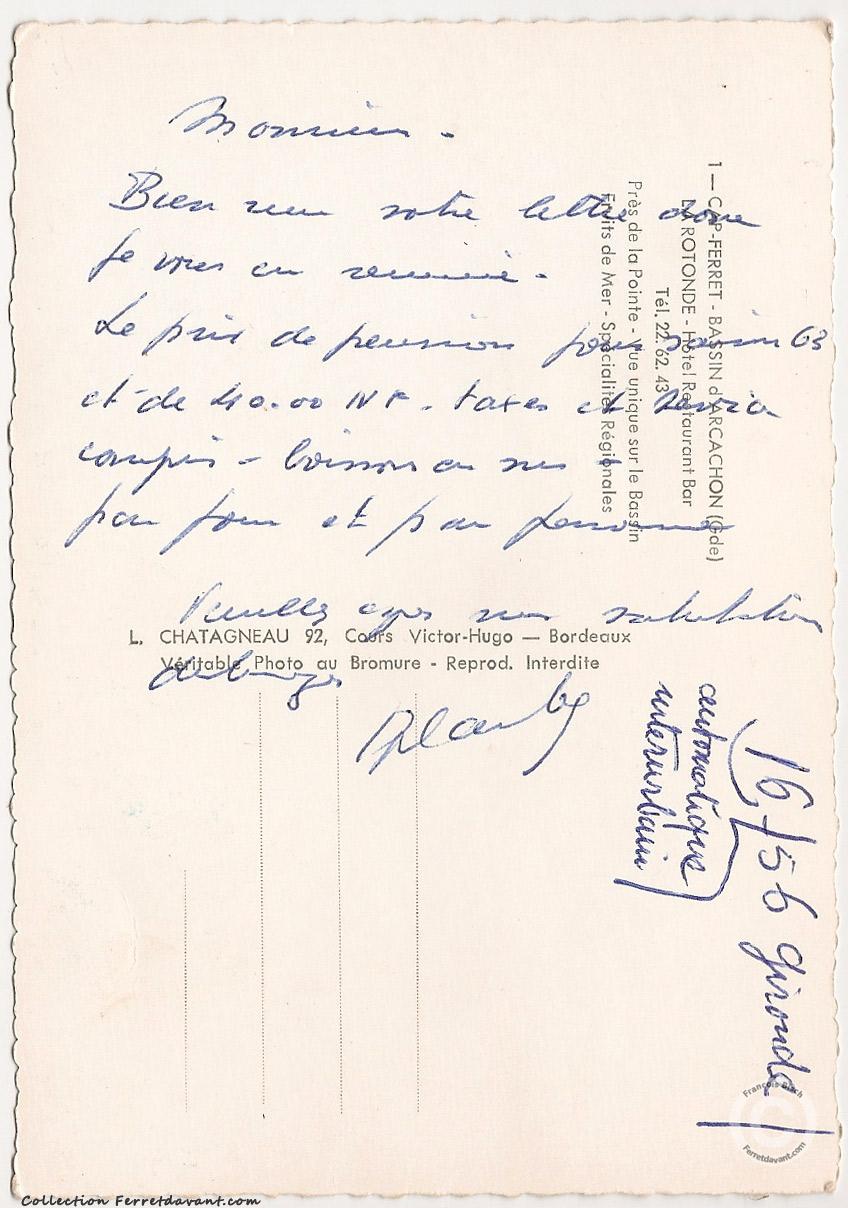 Monsieur -
Bien reçu votre lettre dont
je vous en remercie -
Le prix de pension pour saison 63
et de 40.00 NF - taxes et service
compris - boisson en sus -
par jour et par personne
Veuillez agréer mes salutations
1 — CAP-FERRET - BASSIN d'ARCACHON (Gde)
LA ROTONDE - Hôtel Restaurant Bar
Tél. 22. 62. 43
Près de la Pointe - Vue unique sur le Bassin
Fruits de Mer - Spécialités Régionales
L. CHATAGNEAU 92, Cours Victor-Hugo — Bordeaux
Véritable Photo au Bromure - Reprod. Interdite
16/56 Gironde
automatique
interurbain)
François Bisch
©
Ferretdavant.com
Collection Ferretdavant.com